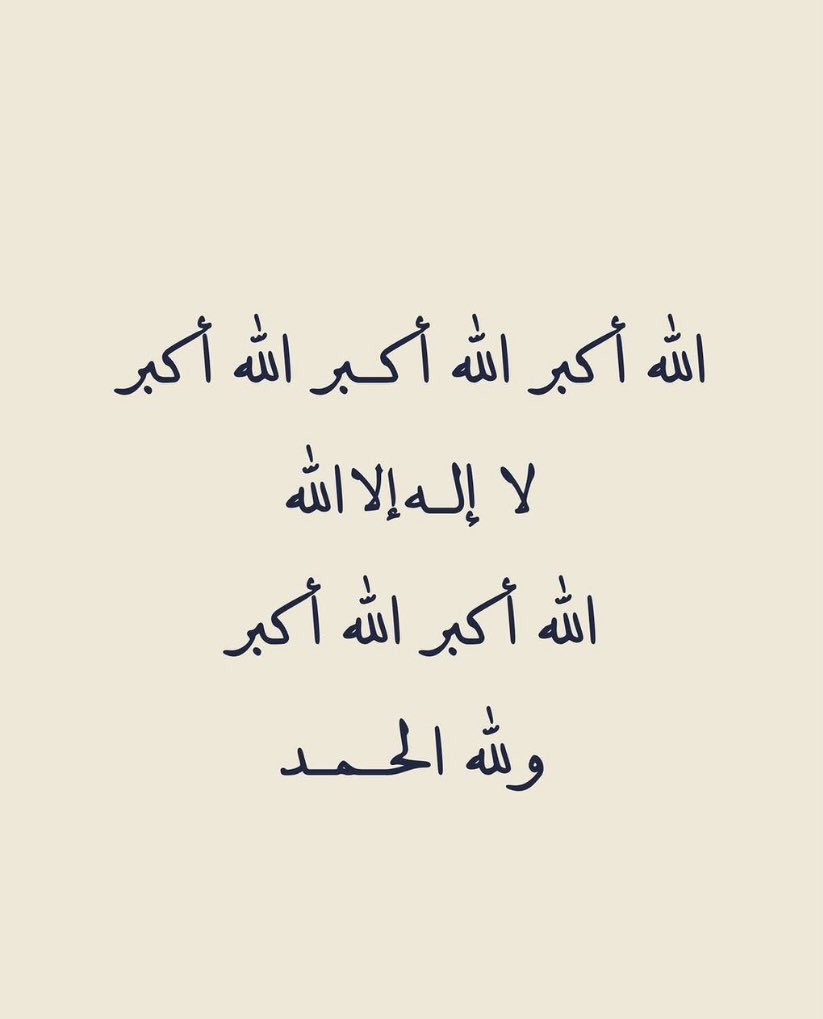 الله أكبر الله أكـبر الله أكبر
لا إلـه إلا الله
الله أكبر الله أكبر
ولله الحـمـد